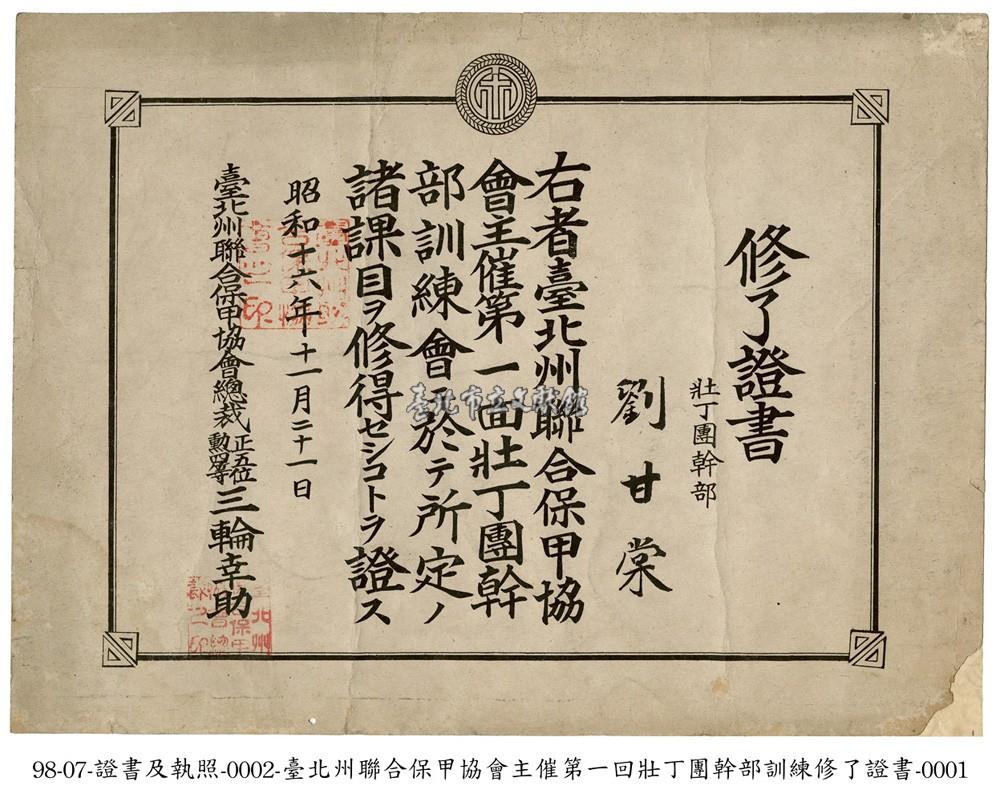 修了證書
壯丁團幹部
劉甘棠
右者臺北州聯合保甲協
會主催第一回壯丁團幹
部訓練會ニ於テ所定ノ
諸課目ヲ修得セシコトヲ證ス
昭和十六年十一月二十一日
臺北州聯合保甲協會總裁 正五位 勲四等 三輪幸助
臺北市立文獻館
98-07-證書及執照-0002-臺北州聯合保甲協會主催第一回壯丁團幹部訓練修了證書-0001